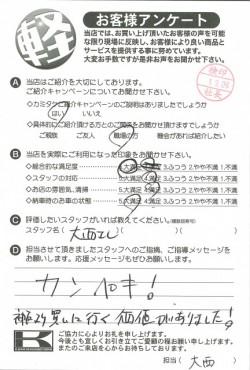 軽
お客様アンケート
当店では、お買い上げ頂いたお客様の声を可能
な限り現場に反映し、お客様により良い商品と
サービスを提供する事に努めています。
大変お手数ですが是非お声をお聞かせ下さい。
検印
社長
A 当店はご紹介を大切にしております。
ご紹介キャンペーンについてお聞かせ下さい。
◇カミタケご紹介キャンペーンのご説明はありましたでしょうか
はい いいえ
◇具体的にご紹介頂ける方とのご関係をお聞かせ頂けますでしょうか
ご親族 ご友人 職場の方 機会があれば紹介したい
B 当店を実際にご利用になった印象をお聞かせ下さい。
◇総合的な満足度 5.大満足 4.満足 3.ふつう 2.やや不満 1.不満
◇スタッフの対応 5.大満足 4.満足 3.ふつう 2.やや不満 1.不満
◇お店の雰囲気、清掃 5.大満足 4.満足 3.ふつう 2.やや不満 1.不満
◇納車時のお車の状態 5.大満足 4.満足 3.ふつう 2.やや不満 1.不満
C 評価したいスタッフがいれば教えてください。(複数回答可)
スタッフ名( 大西さん )
D 担当させて頂きましたスタッフへのご指摘、ご指導メッセージを
お願いします。応援メッセージもぜひお願いします。
カンペキ!
買いに行く価値がありました!
K
ご協力に心よりお礼を申し上げます。
今後とも宜しくお引き立てご愛顧の程お願い申し上げます。
またのご来店を心からお待ちしております。
担当( 大西 )